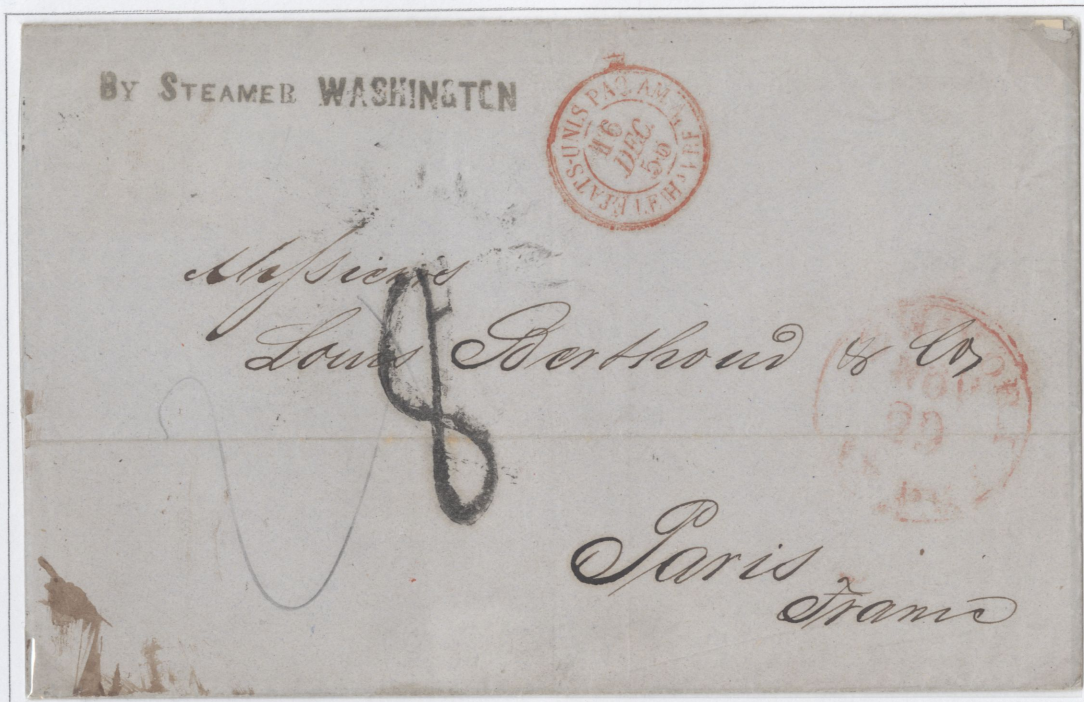 BY STEAMER WASHINGTON
ETATS-UNIS PAQ. AM.
LE HAVRE
16
DEC.
56
Messieurs
Louis Berthoud & Co
8
NOV
29
Paris
France